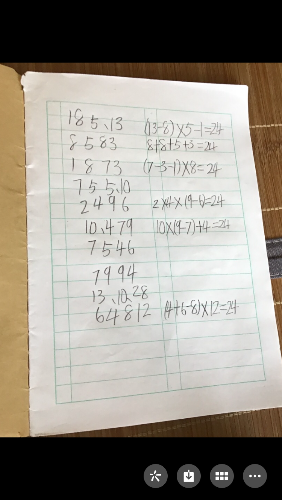 1 8 5、13 (13-8)×5-1=24
8 5 8 3 8+8+5+3=24
1 8 7 3 (7-3-1)×8=24
7 5 5、10
2 4 9 6 2×4×(9-6)=24
10、4 7 9 10×(9-7)+4=24
7 5 4 6
7 9 9 4
13、10、2 8
6 4 8 12 (4+6-8)×12=24